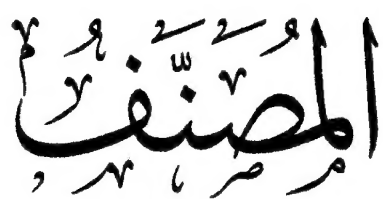 المُصَنَّفُ